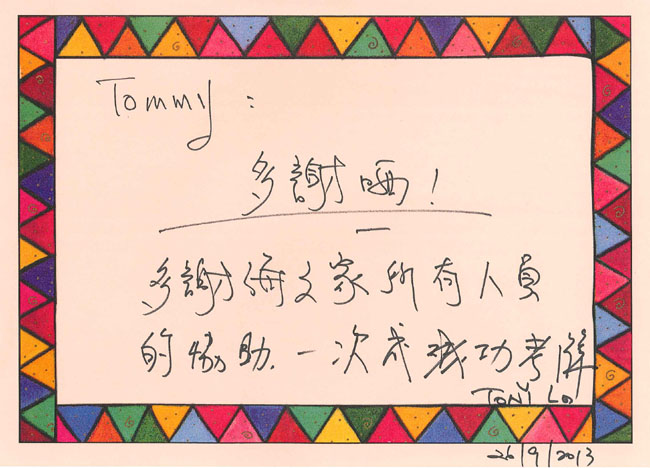 Tommy :
多謝晒！
多謝 文家所有人員
的協助.一次成功考牌
TONY LO
26/9/2013